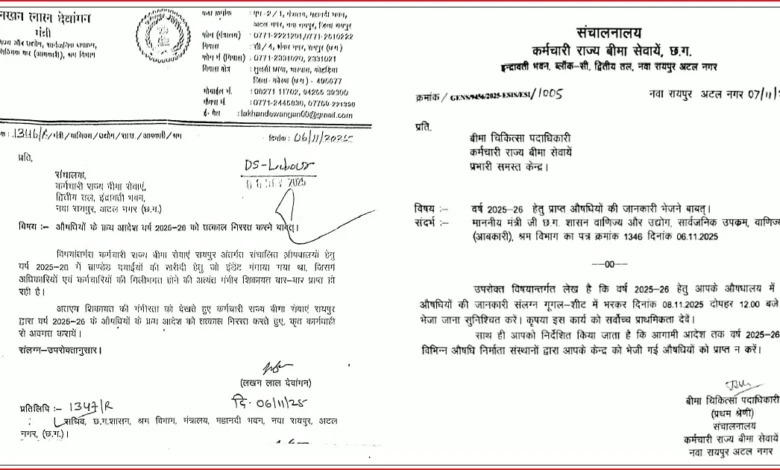 लखन लाल देवांगन
मंत्री
अटल नगर, नवा रायपुर, जिला रायपुर
फोन (मंत्रालय) : 0771-2221201/771-2510222
निवास : सी/4, शंकर नगर, रायपुर (छ.ग.)
फोन नं (निवास) : 0771-2331020, 2331021
जिला-कोरबा (छ.ग.) - 495677
मोबाईल नं. : 98271 11702, 94255 39300
: 0771-2445830, 07759 221390
ई-मेल : lakhandewangan60@gmail.com
दिनांक: 06/11/2025
प्रति,
DS-Labour
संचालक,
कर्मचारी राज्य बीमा सेवाएं,
द्वितीय तल, इंद्रावती भवन,
नवा रायपुर, अटल नगर (छ.ग.)
विषय :- औषधियों के क्रय आदेश वर्ष 2025-26 को तत्काल निरस्त करने बाबत्।
विषयांतर्गत कर्मचारी राज्य बीमा सेवाएं रायपुर अंतर्गत संचालित औषधालयों हेतु
वर्ष 2025-26 में ब्राण्डेड दवाईयों की खरीदी हेतु जो इंडेंट मंगाया गया था, जिसमें
अधिकारियों एवं कर्मचारियों की मिलीभगत होने की अत्यंत गंभीर शिकायत बार-बार प्राप्त हो
रही है।
अतएव शिकायत की गंभीरता को देखते हुए कर्मचारी राज्य बीमा सेवाएं रायपुर
द्वारा वर्ष 2025-26 के औषधियों के क्रय आदेश को तत्काल निरस्त करते हुए, कृत कार्यवाही
से अवगत करायें।
संलग्न-उपरोक्तानुसार।
(लखन लाल देवांगन)
प्रतिलिपि :- 1347/R दि. 06/11/25
सचिव, छ.ग.शासन, श्रम विभाग, मंत्रालय, महानदी भवन, नवा रायपुर, अटल
नगर, (छ.ग.)।
संचालनालय
कर्मचारी राज्य बीमा सेवायें, छ.ग.
इन्द्रावती भवन, ब्लॉक-सी, द्वितीय तल, नवा रायपुर अटल नगर
क्रमांक / /1005 नवा रायपुर अटल नगर 07/11/
प्रति,
बीमा चिकित्सा पदाधिकारी
कर्मचारी राज्य बीमा सेवायें
प्रभारी समस्त केन्द्र।
विषय :- वर्ष 2025-26 हेतु प्राप्त औषधियों की जानकारी भेजने बाबत्।
संदर्भ :- माननीय मंत्री जी छ.ग. शासन वाणिज्य और उद्योग, सार्वजनिक उपक्रम, वाणिज्य
(आबकारी), श्रम विभाग का पत्र क्रमांक 1346 दिनांक 06.11.2025
--00--
उपरोक्त विषयान्तर्गत लेख है कि वर्ष 2025-26 हेतु आपके औषधालय में
औषधियों की जानकारी संलग्न गूगल-शीट में भरकर दिनांक 08.11.2025 दोपहर 12.00 बजे
भेजा जाना सुनिश्चित करें। कृपया इस कार्य को सर्वोच्च प्राथमिकता देवें।
साथ ही आपको निर्देशित किया जाता है कि आगामी आदेश तक वर्ष 2025-26
विभिन्न औषधि निर्माता संस्थानों द्वारा आपके केन्द्र को भेजी गई औषधियों को प्राप्त न करें।
बीमा चिकित्सा पदाधिकारी
(प्रथम श्रेणी)
संचालनालय
कर्मचारी राज्य बीमा सेवायें
नवा रायपुर अटल नगर